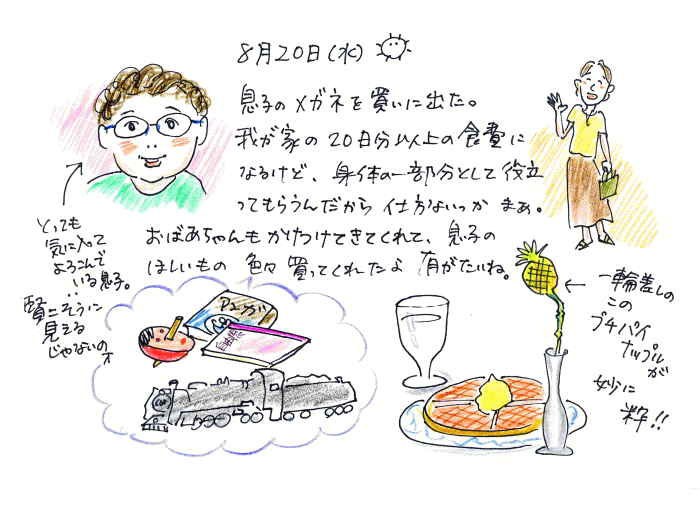 8月20日(水)
息子のメガネを買いに出た。
我が家の20日分以上の食費に
なるけど、身体の一部分として役立
ってもらうんだから仕方ないっか まぁ。
おばあちゃんもかけつけてきてくれて、息子の
ほしいもの 色々買ってくれたよ 有がたいね。
とっても
気に入って
よろこんで
いる息子。
賢こそうに
見える
じゃないのォ
一輪差しの
この
プチパイ
ナップルが
妙に
粋!!